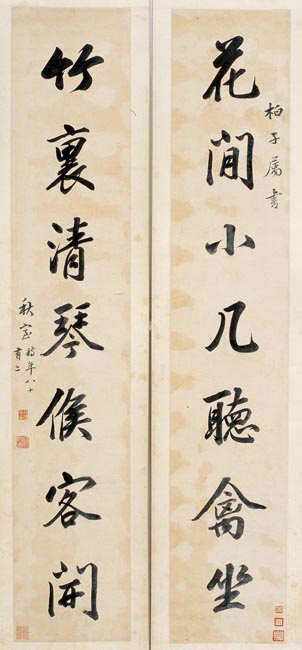 花間小几聽禽坐
柏子屬書
竹裏清琴候客開
秋室時年八十
有二